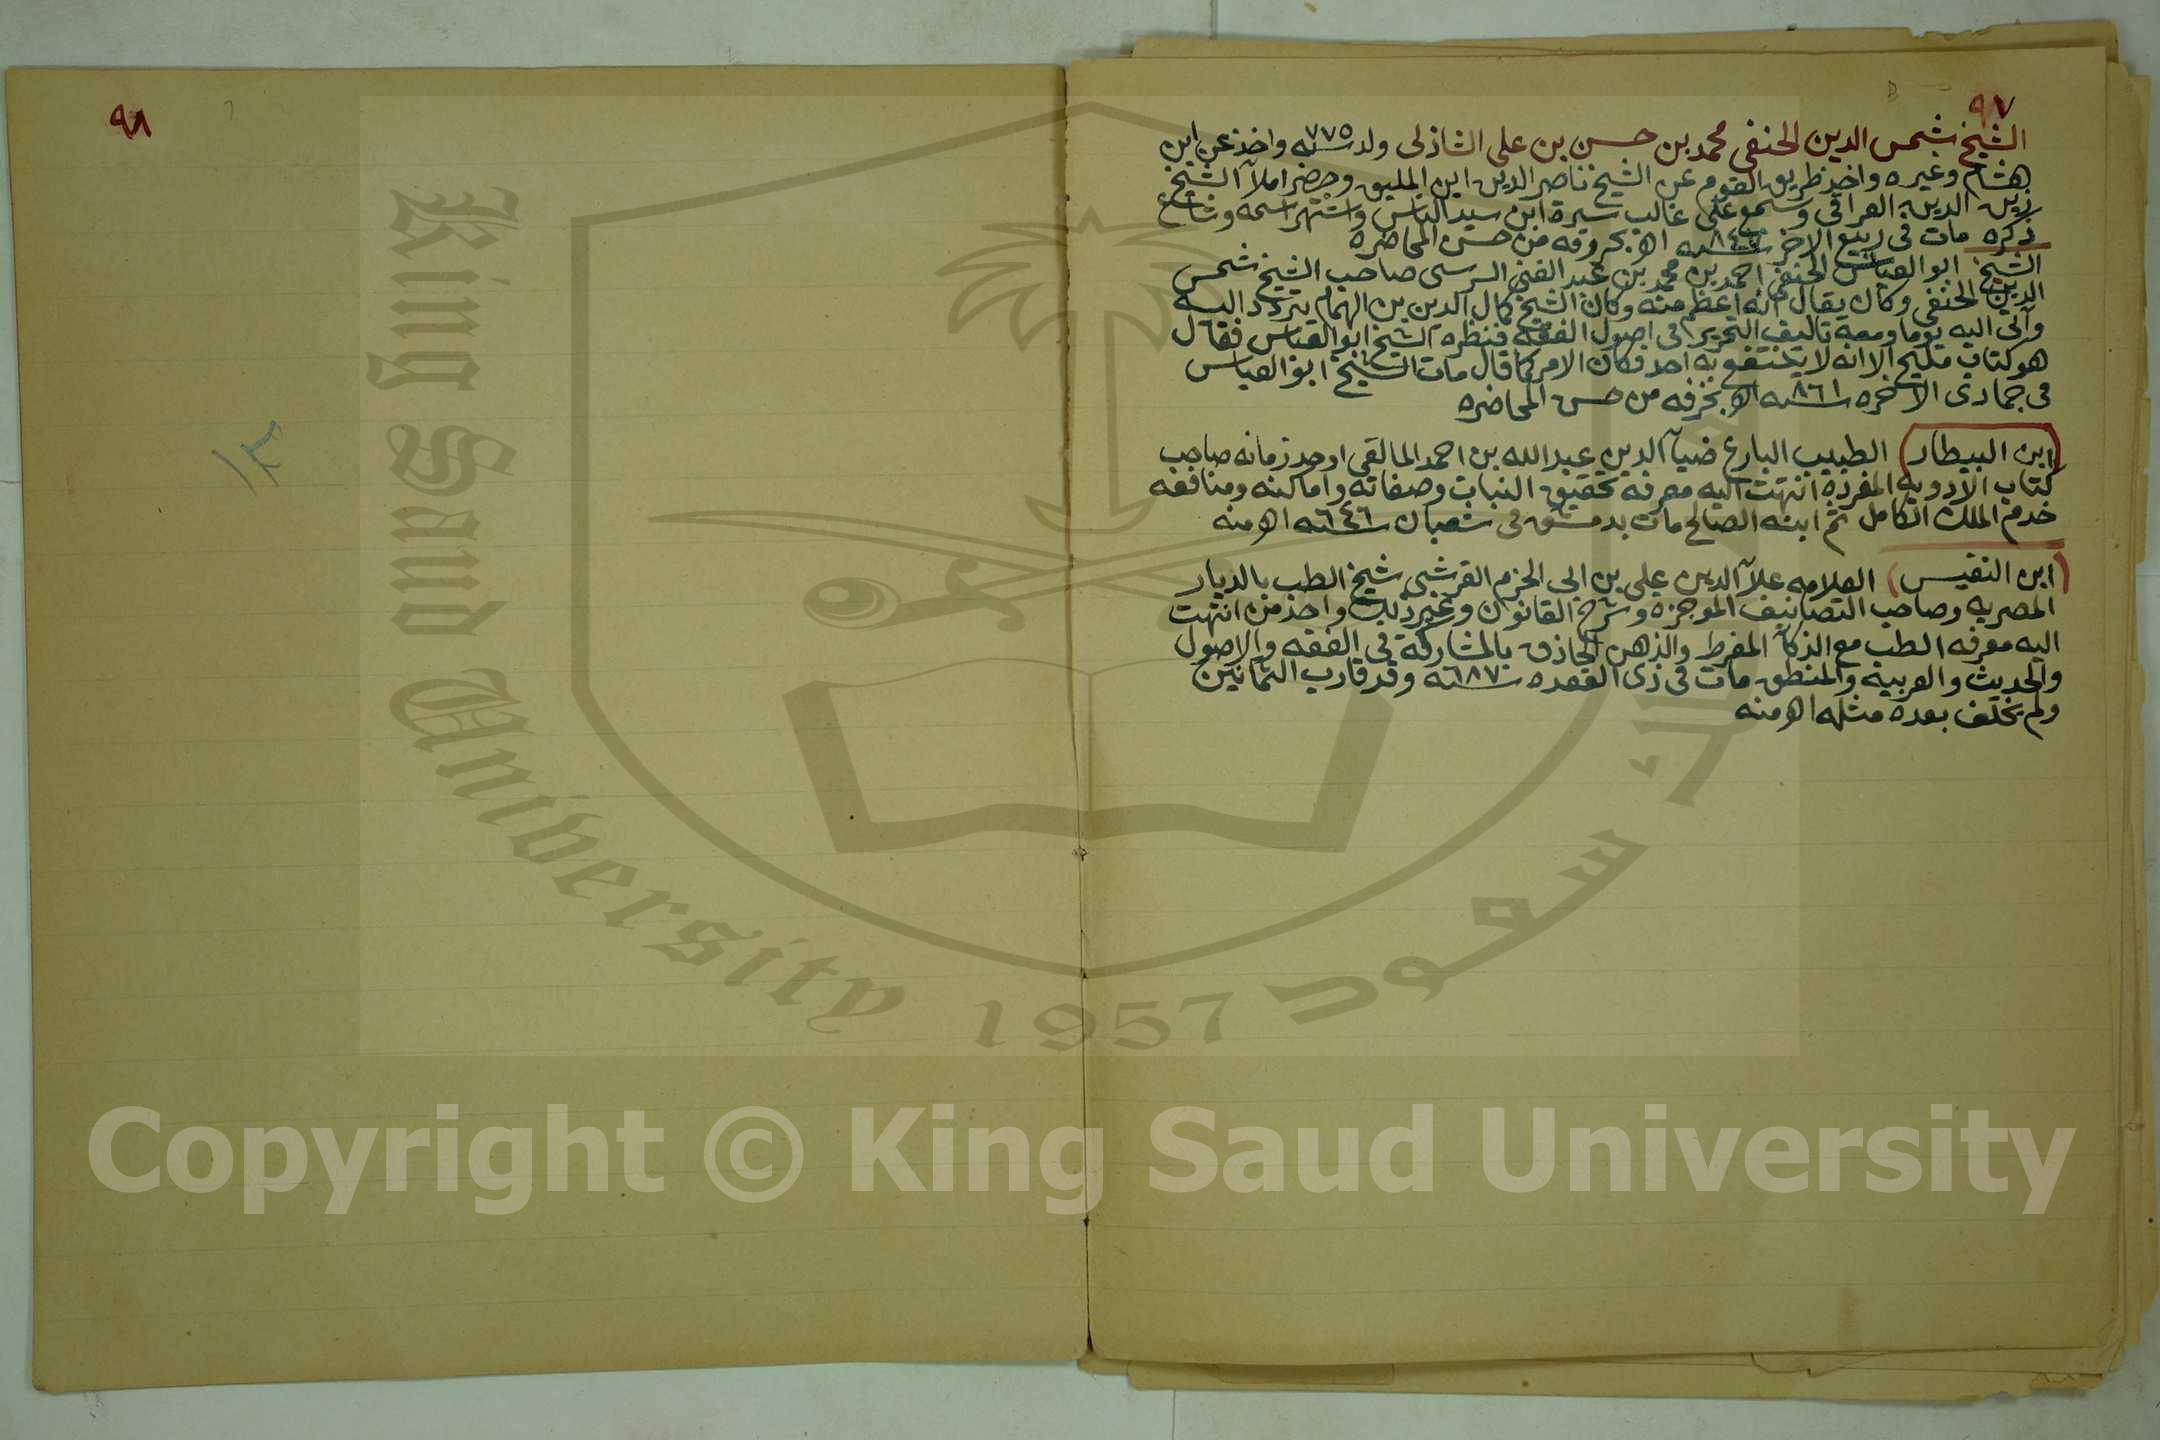 ٩٧
الشيخ شمس الدين الحنفي محمد بن حسن بن علي الشاذلي ولد سنة ٧٧٥ واخذ عن ابن
هشام وغيره واخذ طريق القوم عن الشيخ ناصر الدين ابن المليق وحضر املآ الشيخ
زين الدين العراقي وسمع على غالب سيرة ابن سيد الناس واشتهر اسمه وشاع
ذكره مات في ربيع الاخر سنه اه بحروفه من حسن المحاضره
الشيخ ابو العباس الحنفي احمد بن محمد بن عبد الغني السرسى صاحب الشيخ شمس
الدين الحنفي وكان يقال انه اعظم منه وكان الشيخ كمال الدين بن الهمام يتردد اليه
وآتى اليه يوما ومعه تاليف التحرير في اصول الفقه فنظره الشيخ ابو العباس فقال
هو كتاب مليح الا انه لا ينتفع به احد فكان الامر كما قال مات الشيخ ابو العباس
في جمادى الاخره سنه ٨٦١ اه بحرفه من حسن المحاضره
ابن البيطار الطبيب البارع ضيآ الدين عبد الله بن احمد المالقي اوحد زمانه صاحب
كتاب الادويه المفرده انتهت اليه معرفه تحقيق النبات وصفاته واماكنه ومنافعه
خدم الملك الكامل ثم ابنه الصالح مات بدمشق في شعبان سنه ٦٤٦ اه منه
(ابن النفيس) العلامه علآ الدين علي بن ابي الحزم القرشي شيخ الطب بالديار
المصريه وصاحب التصانيف الموجزه وشرح القانون وغير ذلك واحد من انتهت
اليه معرفه الطب مع الذكآ المفرط والذهن الحاذق بالمشاركة في الفقه والاصول
والحديث والعربية والمنطق مات في ذى القعده سنه ٦٨٧ وقد قارب الثمانين
ولم يخلف بعده مثله اه منه
٩٨
١٣
King Saud University
1957
سعود
Copyright © King Saud University